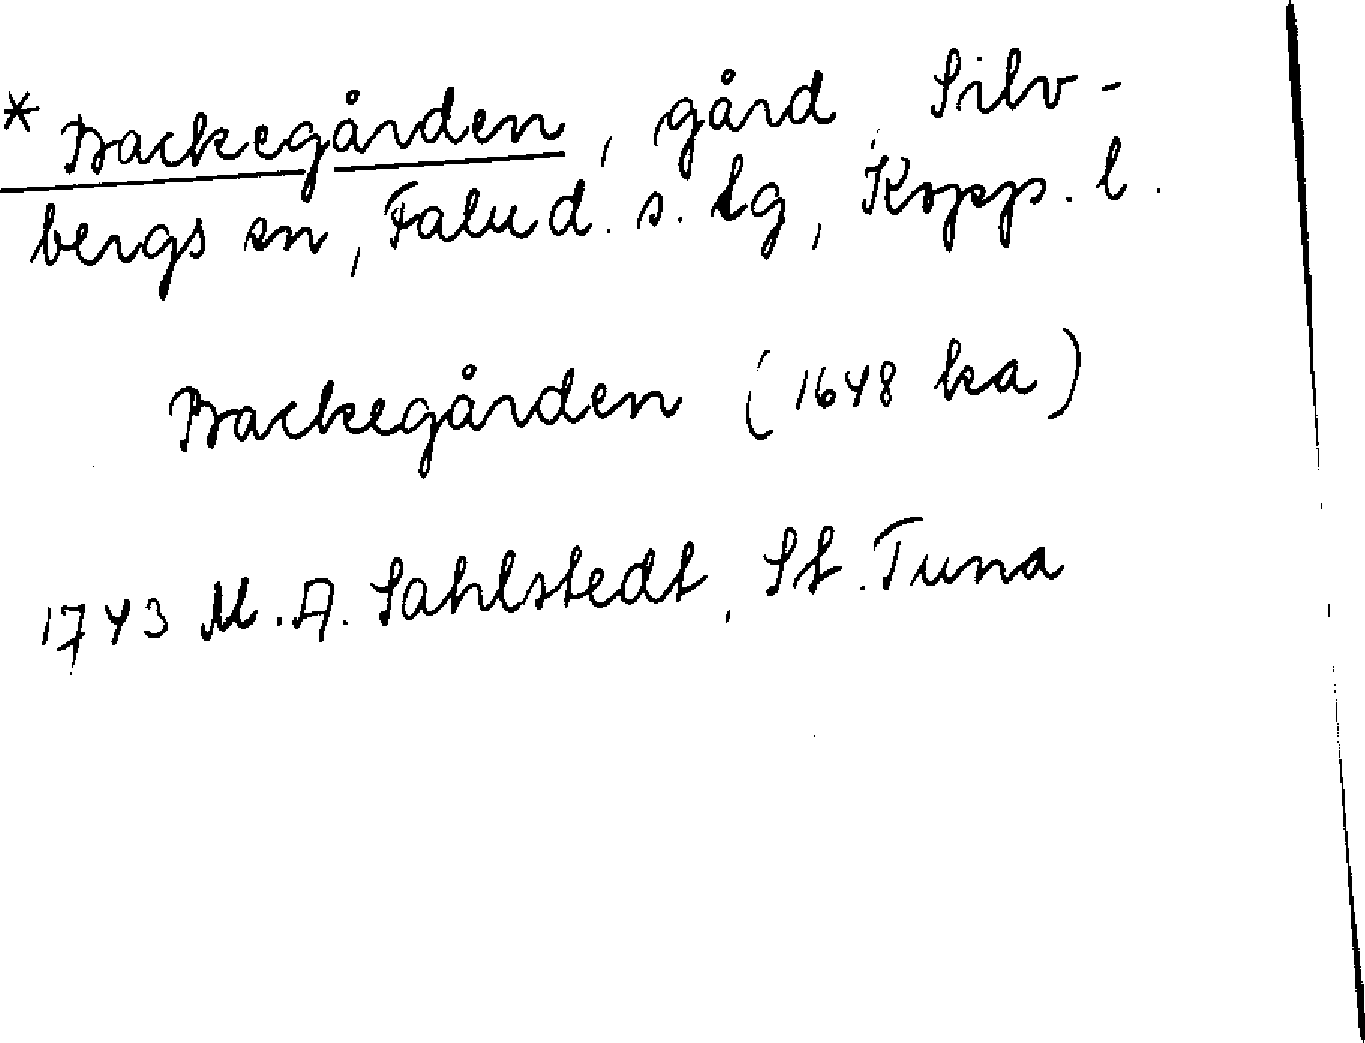 * Backegården, gård, Silv-
bergs sn, Falu d. s. tg, Kopp. l.
Backegården (1648 ka)
1743 M. A. Sahlstedt, St. Tuna